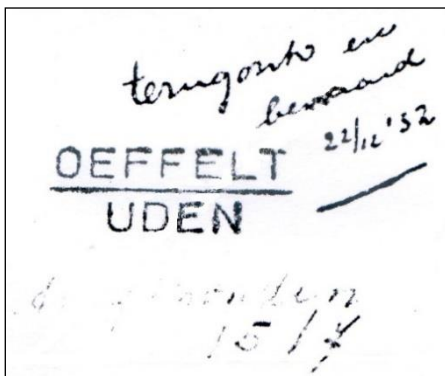 terugontv en
bewaard
22/12 '52
OEFFELT
UDEN
15/7